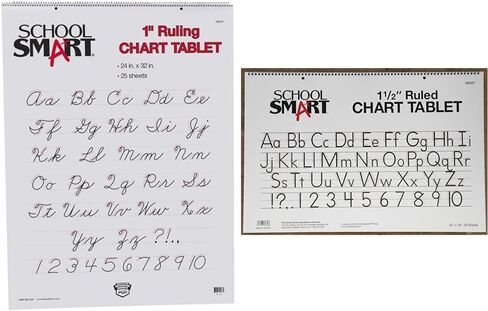 SCHOOL SMART
1" Ruling
CHART TABLET
• 24 in. x 32 in.
• 25 sheets
Aa Bb Cc Dd Ee
Ff Gg Hh Ii Jj
Kk Ll Mm Nn
Oo Pp Qq Rr Ss
Tt Uu Vv Ww Xx
Yy Zz ?!.,
1 2 3 4 5 6 7 8 9 10
SCHOOL SMART
1 1/2" Ruled
CHART TABLET
Aa Bb Cc Dd Ee Ff Gg Hh Ii
Jj Kk Ll Mm Nn Oo Pp Qq Rr
Ss Tt Uu Vv Ww Xx Yy Zz
!?., 1 2 3 4 5 6 7 8 9 10